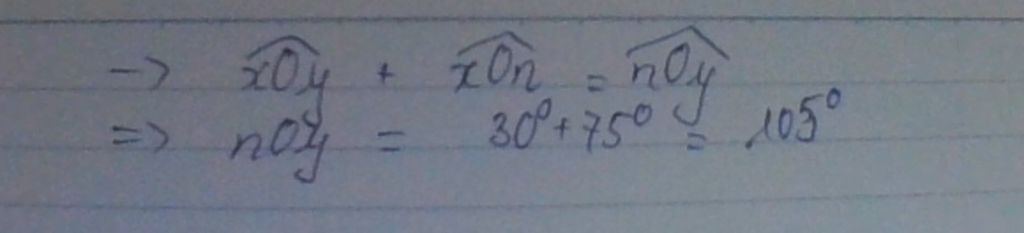 → $\widehat{xOy}$ + $\widehat{xOn}$ = $\widehat{nOy}$
⇒ nOy = 30⁰ + 75⁰ = 105⁰